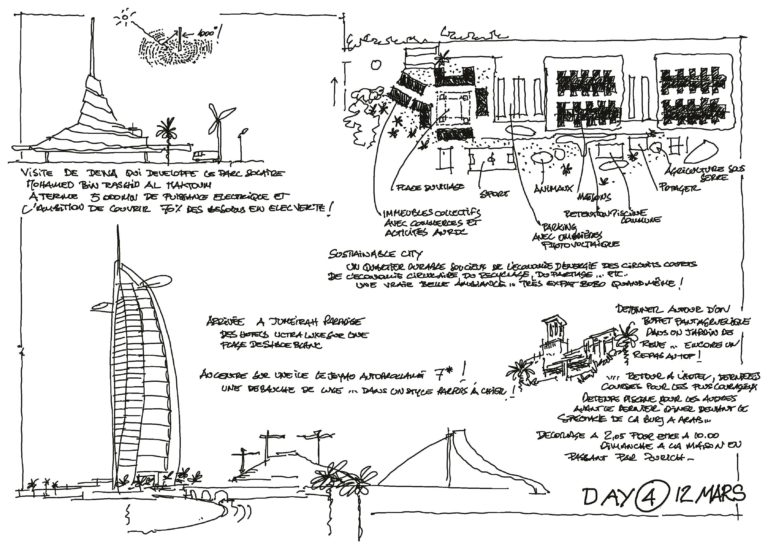 1000°!
VISITE DE DEWA QUI DEVELOPPE LE PARC SOLAIRE
MOHAMED BIN RASHID AL MAKTOUM
A TERME 5 000 MW DE PUISSANCE ELECTRIQUE ET
L'AMBITION DE COUVRIR 75% DES BESOINS EN ELEC VERTE!
PLACE DU VILLAGE
SPORT
ANIMAUX
MAISONS
POTAGER
AGRICULTURE SOUS
SERRE
IMMEUBLES COLLECTIFS
AVEC COMMERCES ET
ACTIVITÉS AU RDC
PARKING
AVEC OMBRIÈRES
PHOTOVOLTAIQUE
RETENTION/PISCINE
COMMUNE
SUSTAINABLE CITY
UN QUARTIER DURABLE SOUCIEUX DE L'ECONOMIE D'ENERGIE DES CIRCUITS COURTS
DE L'ECONOMIE CIRCULAIRE DU RECYCLAGE, DU PARTAGE... ETC.
UNE VRAIE BELLE AMBIANCE... TRÈS EXPAT BOBO QUAND MÊME!
ARRIVÉE A JUMEIRAH PARADISE
DES HOTELS ULTRA LUXE SUR UNE
PLAGE DE SABLE BLANC
AU CENTRE SUR UNE ILE LE JOYAU AUTOPROCLAMÉ 7*!
UNE DEBAUCHE DE LUXE ... DANS UN STYLE PARFOIS À CHIER!
DEJEUNER AUTOUR D'UN
BUFFET PANTAGRUELIQUE
DANS UN JARDIN DE
REVE... ENCORE UN
REPAS AU TOP!
... RETOUR A L'HOTEL, DERNIÈRES
COURSES POUR LES PLUS COURAGEUX
DETENTE PISCINE POUR LES AUTRES
AVANT LE DERNIER DINER DEVANT LE
SPECTACLE DE LA BURJ A ARAB...
DECOLLAGE A 2,05 POUR ETRE A 10.00
DIMANCHE A LA MAISON EN
PASSANT PAR ZURICH...
DAY 4 12 MARS